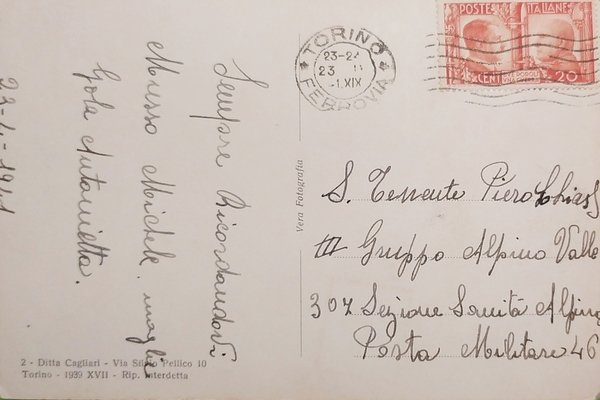 Sempre Ricordandovi
Musso Michele, moglie
Gola Antonietta.
23-4-1941
2 - Ditta Cagliari - Via Silvio Pellico 10
Torino - 1939 XVII - Rip. Interdetta
Vera Fotografia
TORINO
23-24
23
-1.XIX
FERROVIA
POSTE ITALIANE
CENT 20
S. Tenente Piero
III Gruppo Alpino Valle
307 Sezione Sanità Alpina
Posta Militare 46